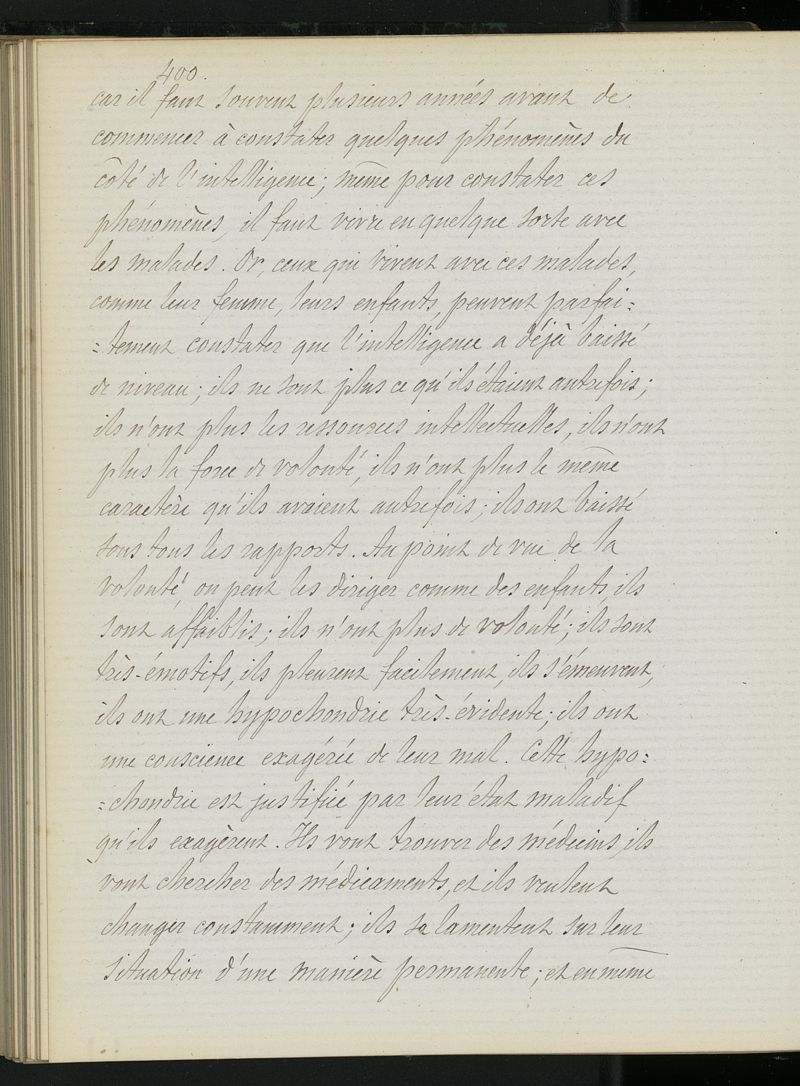 400.
car il faut souvent plusieurs années avant de
commencer à constater quelques phénomènes du
côté de l'intelligence; même pour constater ces
phénomènes, il faut vivre en quelque sorte avec
les malades. Or, ceux qui vivent avec ces malades,
comme leur femme, leurs enfants, peuvent parfai=
=tement constater que l'intelligence a déjà baissé
de niveau; ils ne sont plus ce qu'ils étaient autrefois;
ils n'ont plus les ressources intellectuelles, ils n'ont
plus la force de volonté, ils n'ont plus le même
caractère qu'ils avaient autrefois; ils ont baissé
sous tous les rapports. Au point de vue de la
volonté, on peut les diriger comme des enfants ils
sont affaiblis; ils n'ont plus de volonté; ils sont
très-émotifs, ils pleurent facilement, ils s'émeuvent,
ils ont une hypochondrie très-évidente; ils ont
une conscience exagérée de leur mal. Cette hypo=
=chondrie est justifiée par leur état maladif
qu'ils exagèrent. Ils vont trouver des médecins, ils
vont chercher des médicaments, et ils veulent
changer constamment; ils se lamentent sur leur
situation d'une manière permanente; et en même